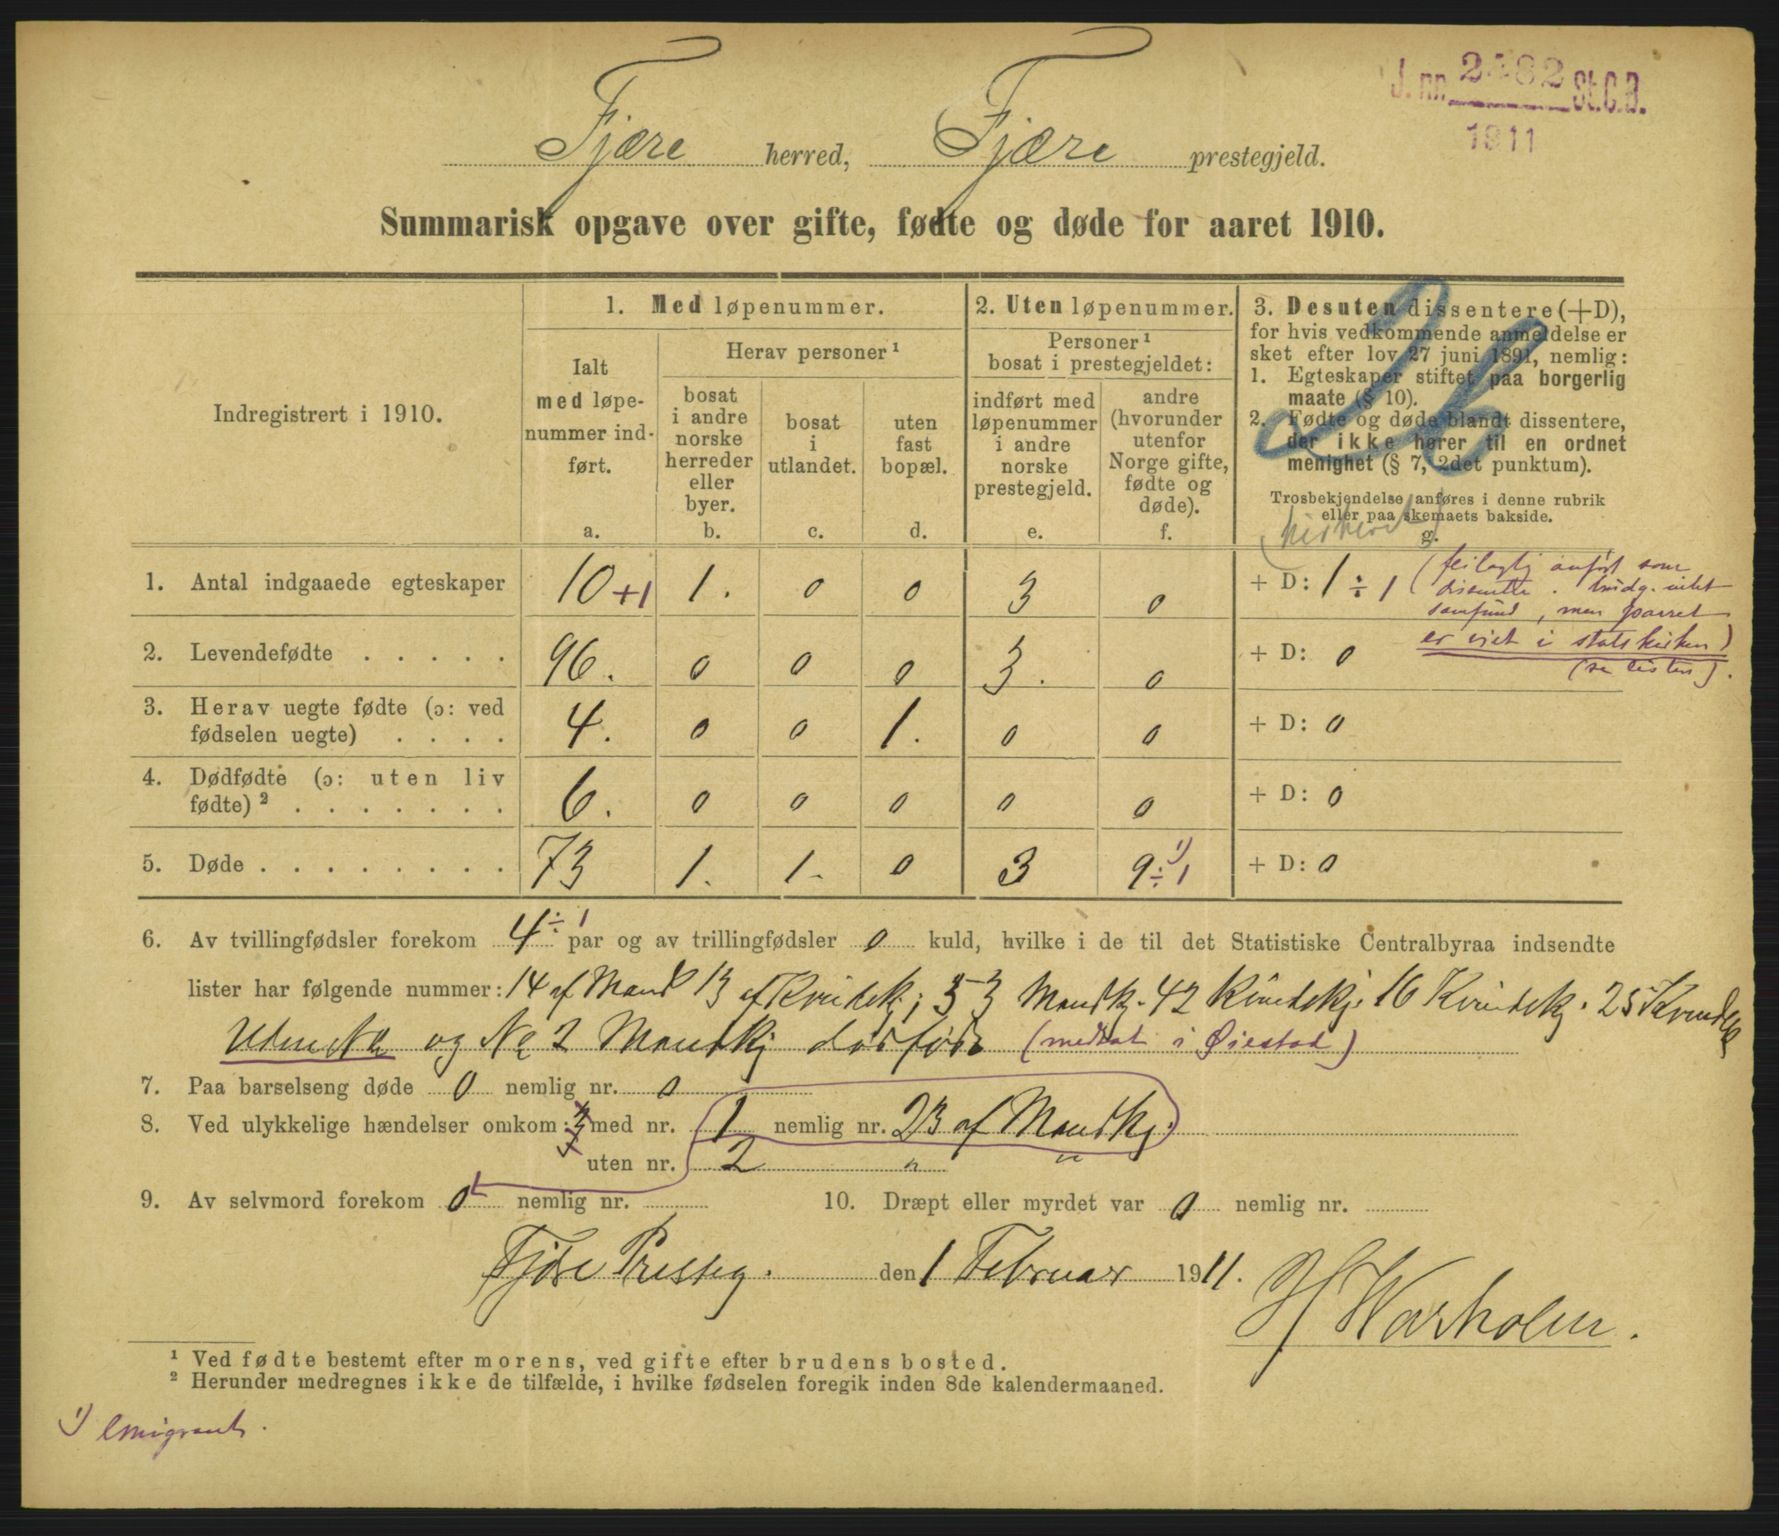 J. nr. 2482 St.C.B.
1911
Fjære herred, Fjære prestegjeld.
Summarisk opgave over gifte, fødte og døde for aaret 1910.
Indregistrert i 1910.
1. Med løpenummer.
Ialt
med løpe-
nummer ind-
ført.
a.
Herav personer ¹
bosat
i andre
norske
herreder
eller
byer.
b.
bosat
i
utlandet.
c.
uten
fast
bopæl.
d.
2. Uten løpenummer.
Personer ¹
bosat i prestegjeldet:
indført med
løpenummer
i andre
norske
prestegjeld.
e.
andre
(hvorunder
utenfor
Norge gifte,
fødte og
døde).
f.
3. Desuten dissentere (+D),
for hvis vedkommende anmeldelse er
sket efter lov 27 juni 1891, nemlig:
1. Egteskaper stiftet paa borgerlig
maate (§ 10).
2. Fødte og døde blandt dissentere,
der ikke hører til en ordnet
menighet (§ 7, 2det punktum).
Trosbekjendelse anføres i denne rubrik
eller paa skemaets bakside.
g.
1. Antal indgaaede egteskaper 10+1 1. 0 0 3 0 + D: 1 ÷ 1 (feilagtig anført som
dissentere. samfund, men parret
er viet i statskirken)
(se listen).
2. Levendefødte . . . . . 96. 0 0 0 3. 0 + D: 0
3. Herav uegte fødte (ɔ: ved
fødselen uegte) . . . . 4. 0 0 1. 0 0 + D: 0
4. Dødfødte (ɔ: uten liv
fødte) ² . . . . . . . 6. 0 0 0 0 0 + D: 0
5. Døde . . . . . . . . 73 1. 1. 0 3 9 ÷ 1 ¹) + D: 0
6. Av tvillingfødsler forekom 4 ÷ 1 par og av trillingfødsler 0 kuld, hvilke i de til det Statistiske Centralbyraa indsendte
lister har følgende nummer: 14 af Mandk 13 af Kvindek; 53 Mandkj. 42 Kvindekj. 16 Kvindekj. 25 Kvindek
Uden No og No 2 Mandkj dødfødt (medtat i Øiestad)
7. Paa barselseng døde 0 nemlig nr. 0
8. Ved ulykkelige hændelser omkom: 3 med nr. 1 nemlig nr. 23 af Mandkj.
uten nr. 2 " "
9. Av selvmord forekom 0 nemlig nr. 10. Dræpt eller myrdet var 0 nemlig nr.
Fjære Presteg. den 1 Februar 1911.
H Warholm.
¹ Ved fødte bestemt efter morens, ved gifte efter brudens bosted.
² Herunder medregnes ikke de tilfælde, i hvilke fødselen foregik inden 8de kalendermaaned.
¹) emigrant.